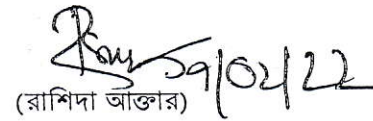 ১৭/০২/২২
(রাশিদা আক্তার)